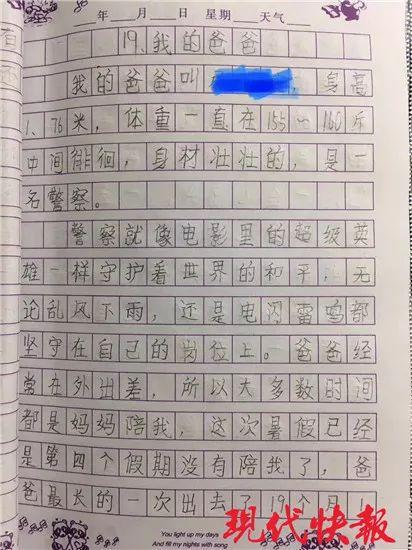 年 月 日 星期 天气
19、我的爸爸
我的爸爸叫 ，身高
1.76米，体重一直在155~160斤
中间徘徊，身材壮壮的，是一
名警察。
警察就像电影里的超级英
雄一样守护着世界的和平，无
论乱风下雨，还是电闪雷鸣都
坚守在自己的岗位上。爸爸经
常在外出差，所以大多数时间
都是妈妈陪我，这次暑假已经
是第四个假期没有陪我了，爸
爸最长的一次出去了19个月！
You light up my days
And fill my nights with song
现代快報